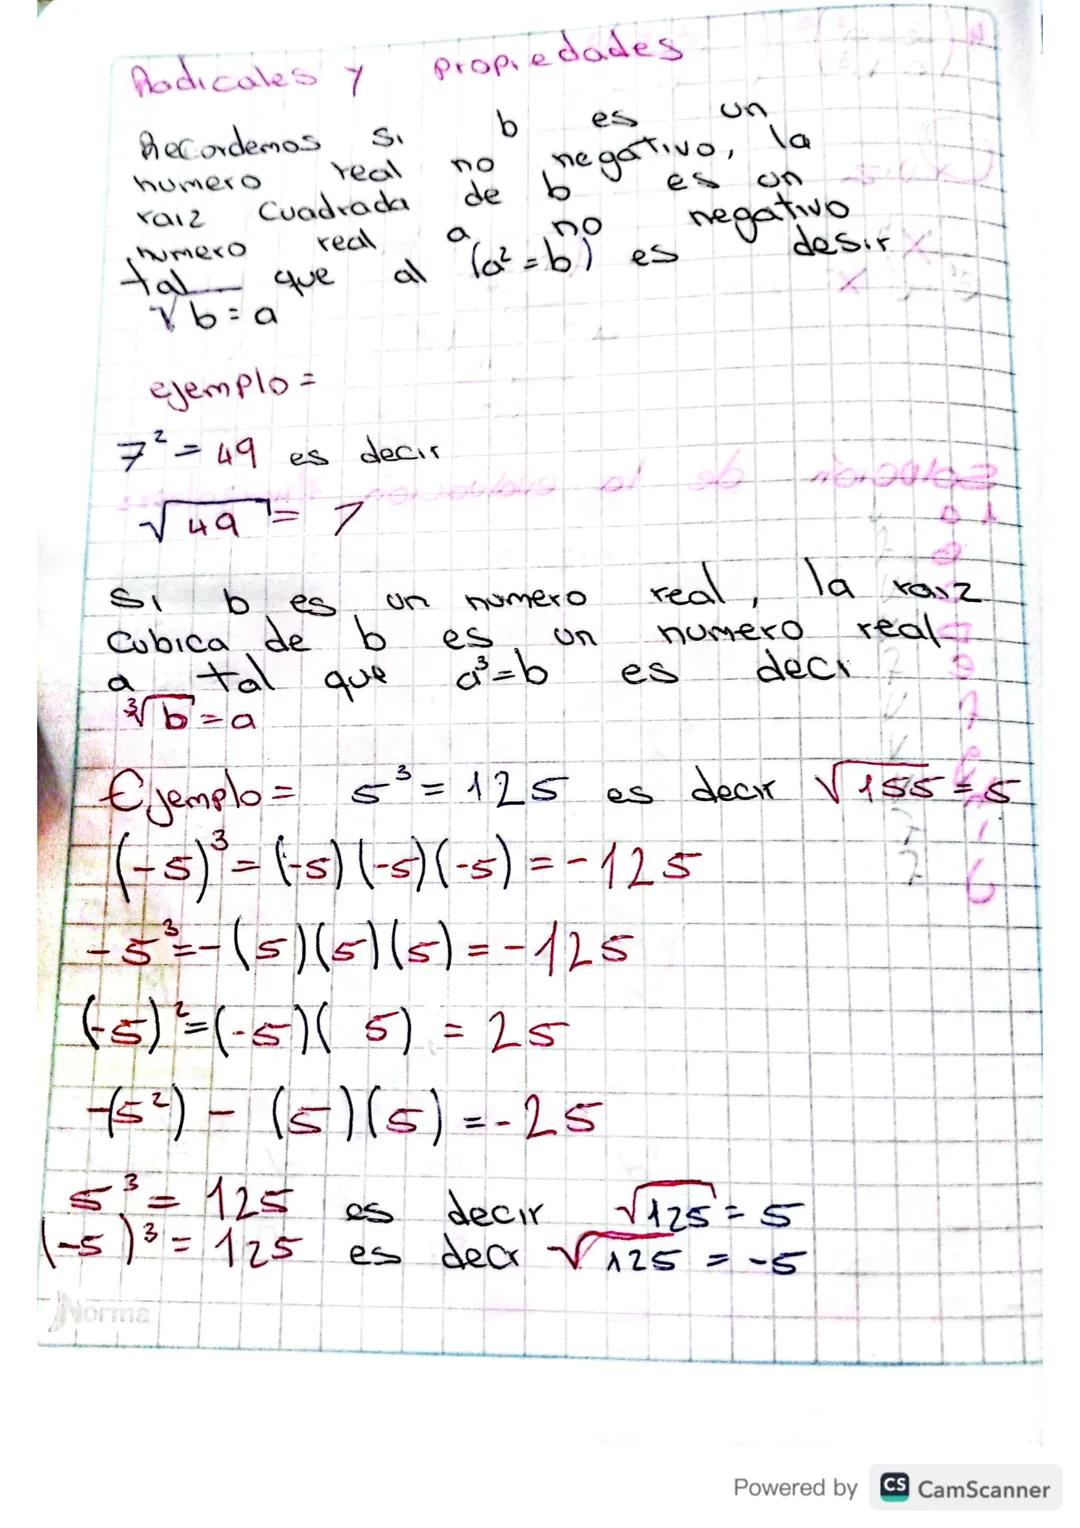 Radicales y propiedades
Recordemos si b es un
numero real no negativo, la
raiz Cuadrada de b es un
numero real a no negativo
tal que al (a² = b) es desir
√b = a
ejemplo =
7² = 49 es decir
√49 = 7
Si b es un numero real, la raiz
Cubica de b es un numero real
a tal que a³ = b es deci
∛b = a
Ejemplo = 5³ = 125 es decir √155 = 5
(-5)³ = (-5)(-5)(-5) = -125
-5³ = -(5)(5)(5) = -125
(-5)² = (-5)( 5) = 25
-(5²) - (5)(5) = -25
5³ = 125 es decir √125 = 5
(-5)³ = 125 es decr √125 = -5
Norma
Powered by CS CamScanner